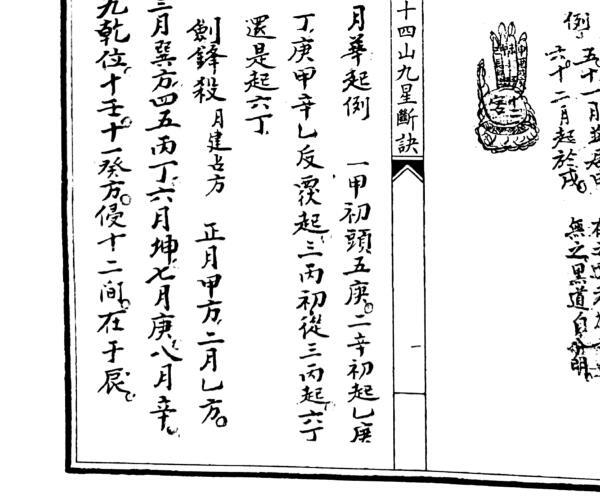 例
五十一月並居申
六十二月起於戌。
無之黑道自分明
十四山九星斷訣
一
月華起例 一甲初頭五庚。二辛初起乙庚
丁庚甲辛乙反覆起三丙初從三丙起六丁
還是起六丁
劍鋒殺 月建占方 正月甲方二月乙方。
三月巽方四五丙丁六月坤七月庚八月辛。
九乾位十壬十一癸方。侵十二間在于艮。